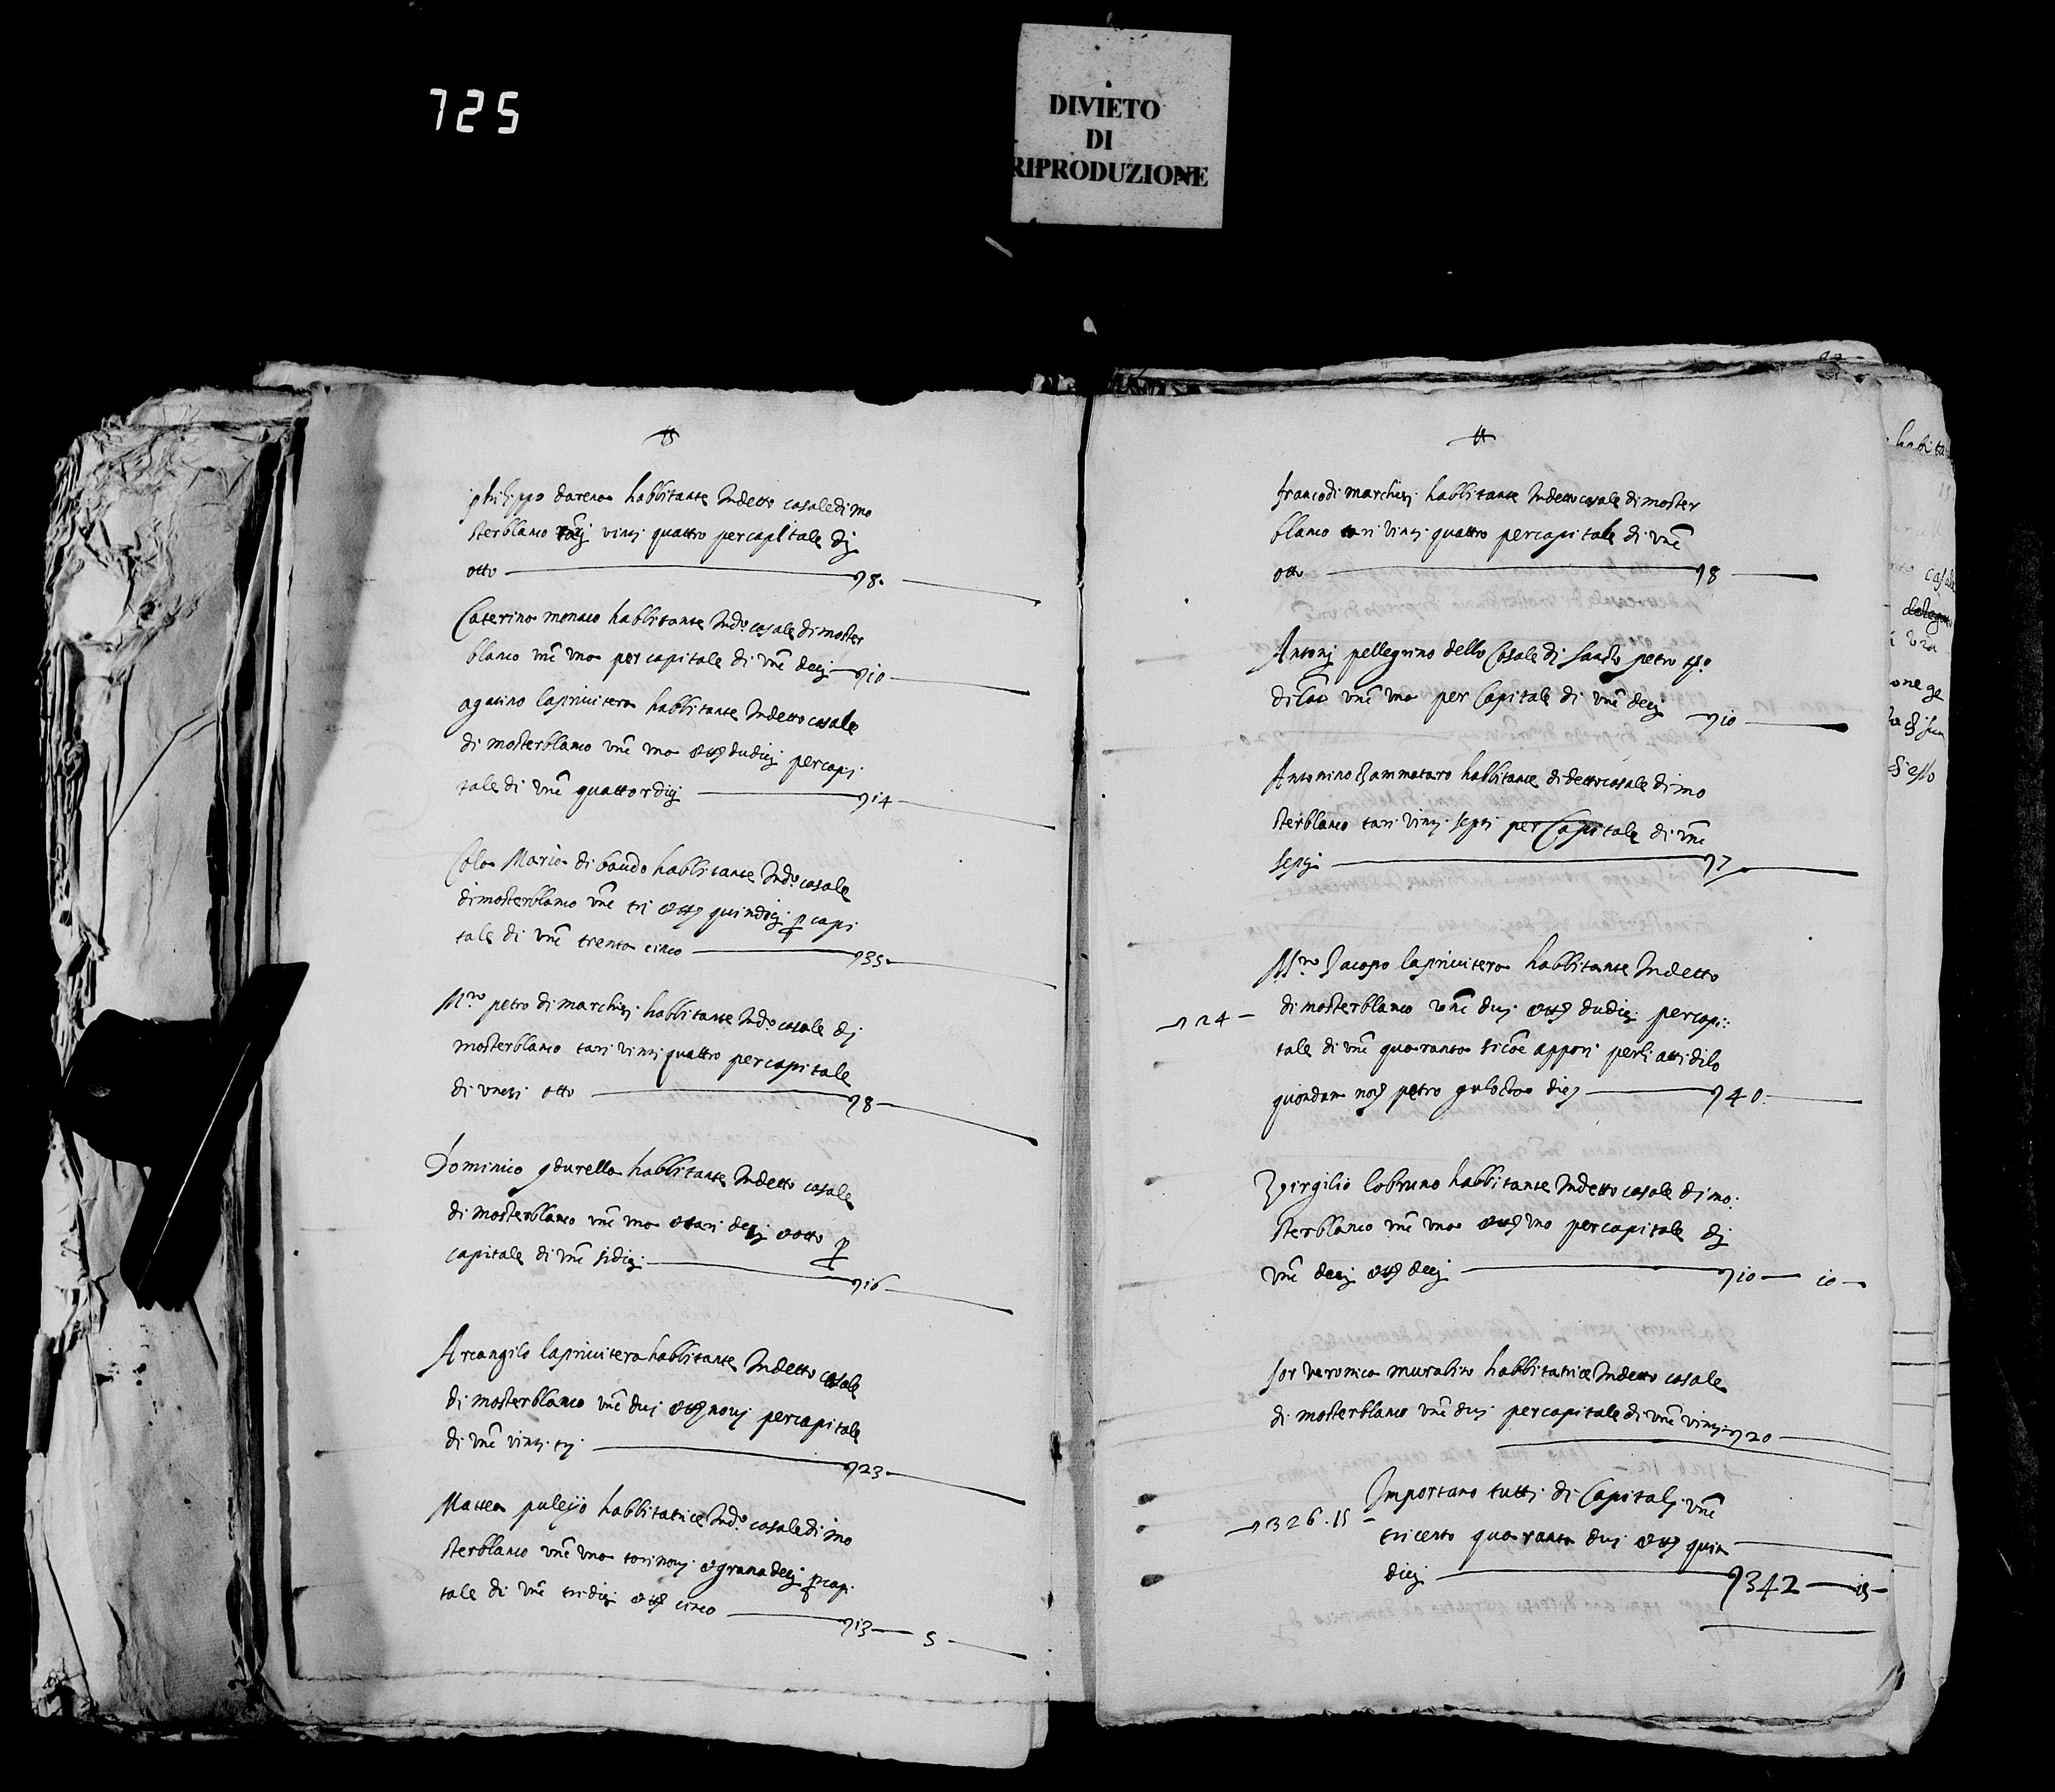 725
DIVIETO
DI
RIPRODUZIONE
philippo darena habbitante Indetto casale di mo
sterblanco tarj vinti quattro per capitale dj
otto 8.
Caterina monaco habbitante Ind.o casale di moster
blanco unc una per capitale di unc decj 10
agatino laprivitera habbitante Indetto casale
di mosterblanco unc una et tt dudicj per capi
tale di unc quattordicj 14
Cola Maria di baudo habbitante Ind.o casale
di mosterblanco unc tri et tt quindicj p capi
tale di unc trenta cinco 35
M.ro petro di marchisi habbitante Ind.o casale dj
mosterblanco tari vinti quattro per capitale
di unczi otto 8
Dominico habbitante Indetto casale
di mosterblanco unc una et tari decj et otto p
capitale di unc sidicj 16
Arcangilo laprivitera habbitante Indetto casale
di mosterblanco unc duj et tt novj per capitale
di unc vinti trj 23
Mattea puleyo habbitatrice Ind.o casale di mo
sterblanco unc una tari novj et grana decj p capi
tale di unc tridicj et tt cinco 13 5
franco di marchisi habbitante Indetto casale di moster
blanco tari vinti quattro per capitale di unc
otto 8
Antonj pellegrino dello Casale di Sancto petro
unc una per Capitale di unc decj 10
Antonino Zammataro habbitante di detto casale di mo
sterblanco tari vinti septi per Capitale di unc
septj 7
M.ro Jacopo laprivitera habbitante Indetto
24 di mosterblanco unc duj et tt dudicj per capi:
tale di unc quaranta sicome appari per li atti dilo
quondam petro 40
Virgilio lobruno habbitante Indetto casale di mo:
sterblanco unc una et tt uno per capitale dj
unc decj et tt decj 10 10
Sor veronica murabito habbitatrice Indetto casale
di mosterblanco unc duj per capitale di unc vinti 20
326.15 Importano tutti di Capitalj unc
tricento quaranta duj et tt quin
dicj 342 15
habita
casale